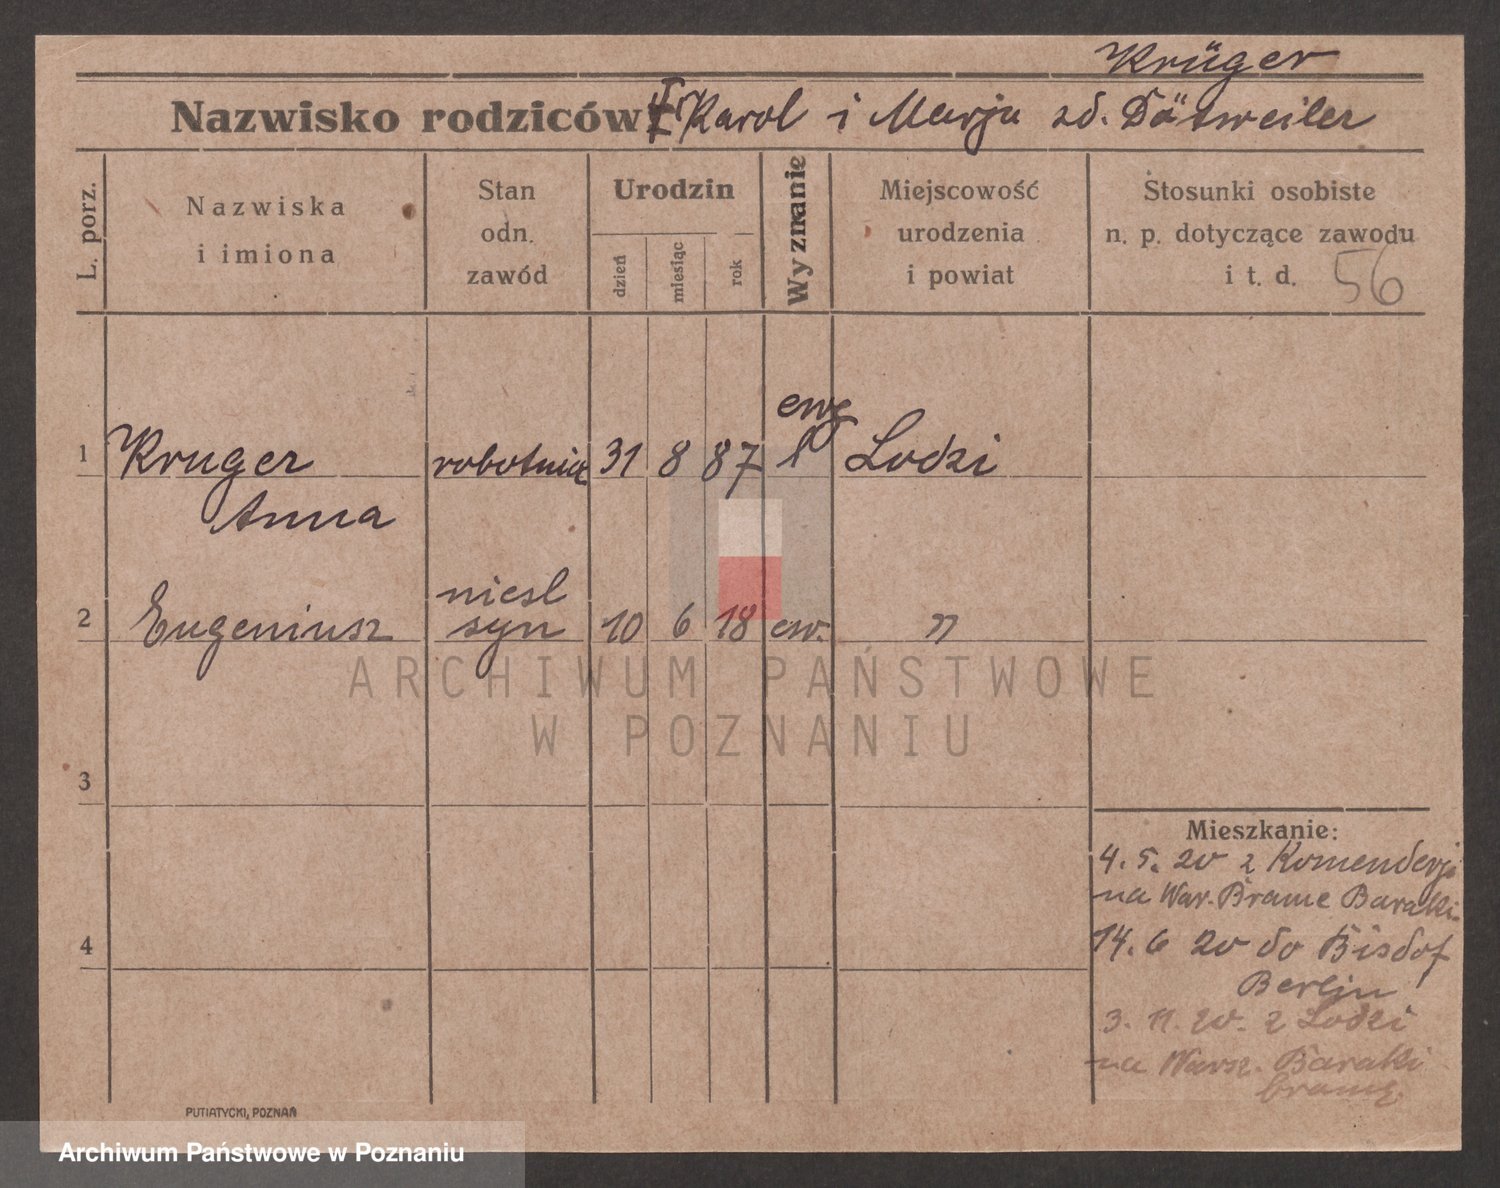 Krüger
Nazwisko rodziców: Karol i Marja zd. Dätweiler
L. porz.
Nazwiska
i imiona
Stan
odn.
zawód
Urodzin
dzień
miesiąc
rok
Wyznanie
Miejscowość
urodzenia
i powiat
Stosunki osobiste
n. p. dotyczące zawodu
i t. d. 56
ewg
1 Kruger robotnica 31 8 87 Lodzi
Anna
niesl
2 Eugeniusz syn 10 6 18 ew. "
ARCHIWUM PAŃSTWOWE
W POZNANIU
3
Mieszkanie:
4. 5. 20 z Komenderji
na War. Brame Baraki
4
14. 6 20 do Bisdof
Berlin
3. 11. 20. z Lodzi
na Warsz. Baraki
bramę
PUTIATYCKI, POZNAŃ
Archiwum Państwowe w Poznaniu